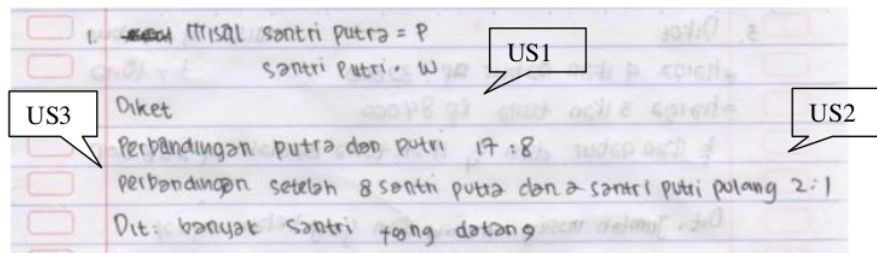 1. misal santri putra = P
santri putri = W
US1
Diket
US3
US2
Perbandingan putra dan putri 17 : 8
perbandingan setelah 8 santri putra dan 2 santri putri pulang 2 : 1
Dit : banyak santri yang datang